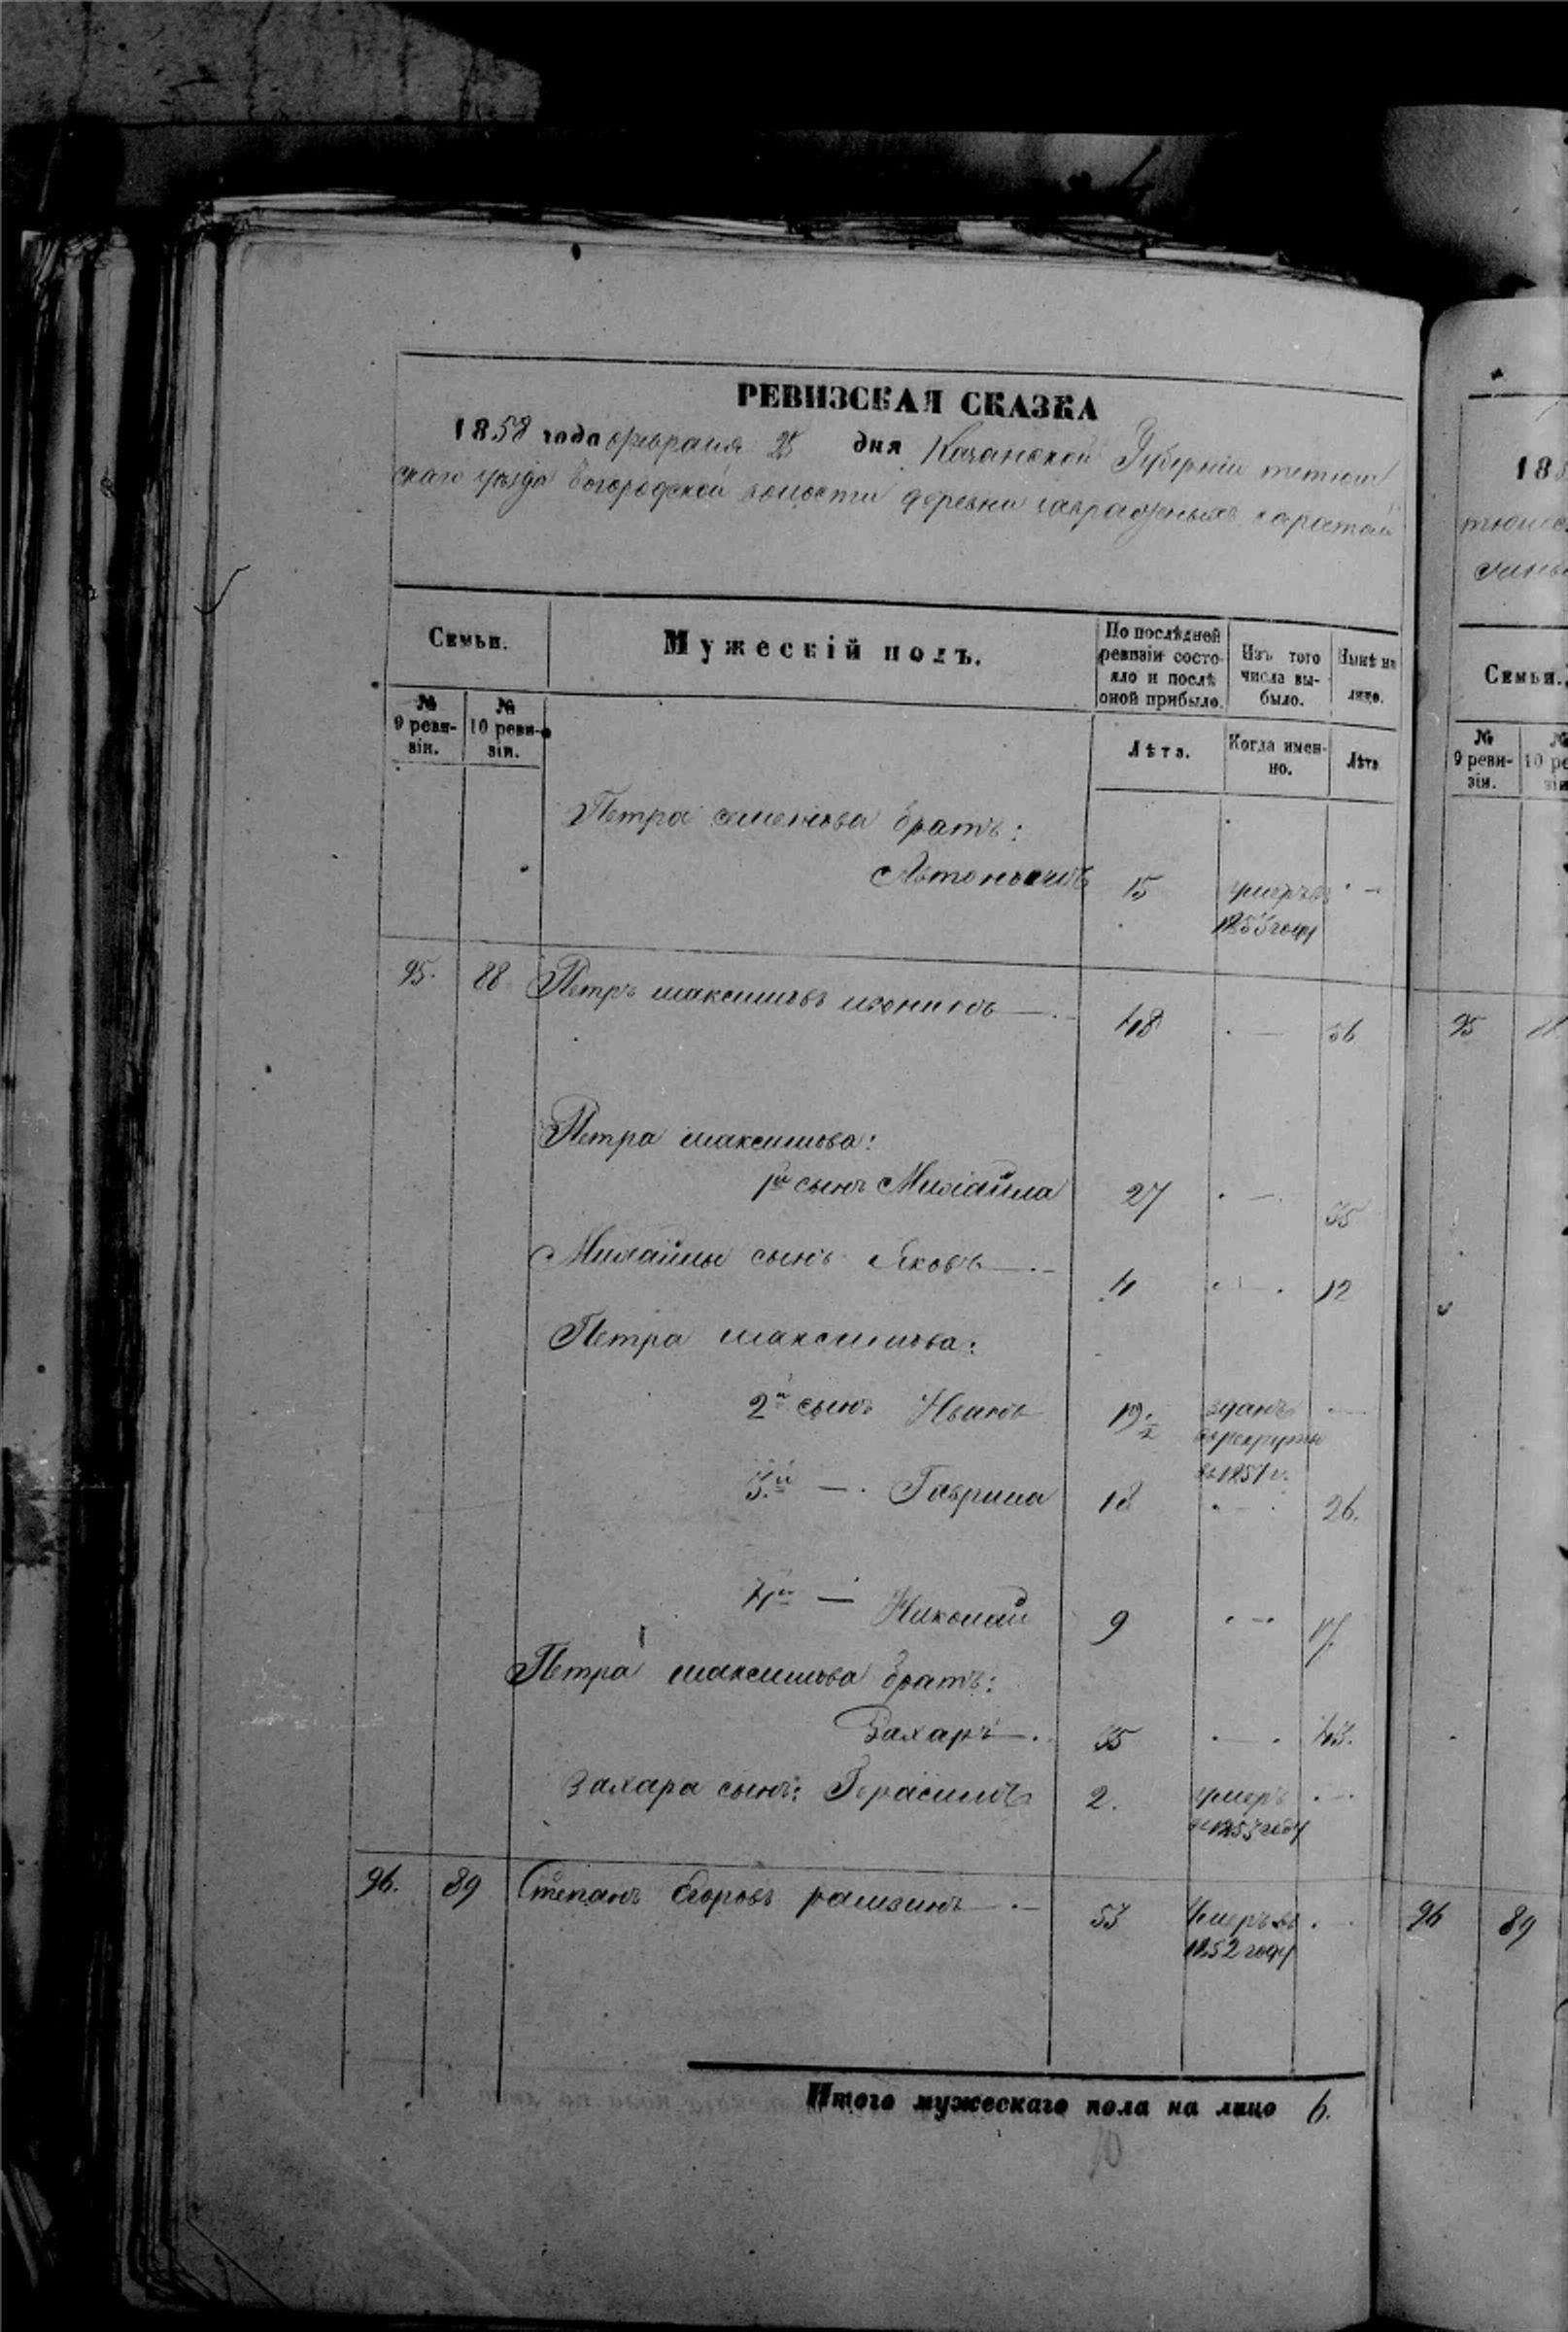 РЕВИЗСКАЯ СКАЗКА
1858 года февраля 25 дня Казанской Губерніи тетюш
скаго уѣзда Богородской волости деревни каратай
Семьи.
Мужескій полъ.
По послѣдней ревизіи состояло и послѣ оной прибыло.
Изъ того числа выбыло.
Нынѣ на лицо.
№ 9 ревизіи.
№ 10 ревизіи.
Лѣта.
Когда именно.
Лѣта
Петра семенова братъ:
Автономъ 15 умеръ въ · —
1855 году
95. 88 Петръ максимовъ — 48 · — 56
Петра максимова:
1й сынъ Михайла 27 · — 35
Михайлы сынъ Яковъ — 4 · — 12
Петра максимова:
2й сынъ Иванъ 19 1/2 зданъ —
въ рекруты
въ 1851 г.
3й — Гаврила 18 · — 26.
4й — Николай 9 · — 17.
Петра максимова братъ:
Захаръ — 35 · — 43.
Захара сынъ: Герасимъ 2. умеръ · —
въ 1853 году
96. 89 Степанъ Егоровъ рамзинъ — 53 Умеръ въ · —
1852 году
Итого мужескаго пола на лицо 6.
10
185
тюшс
Семьи.
№ 9 ревизіи.
95
96 89